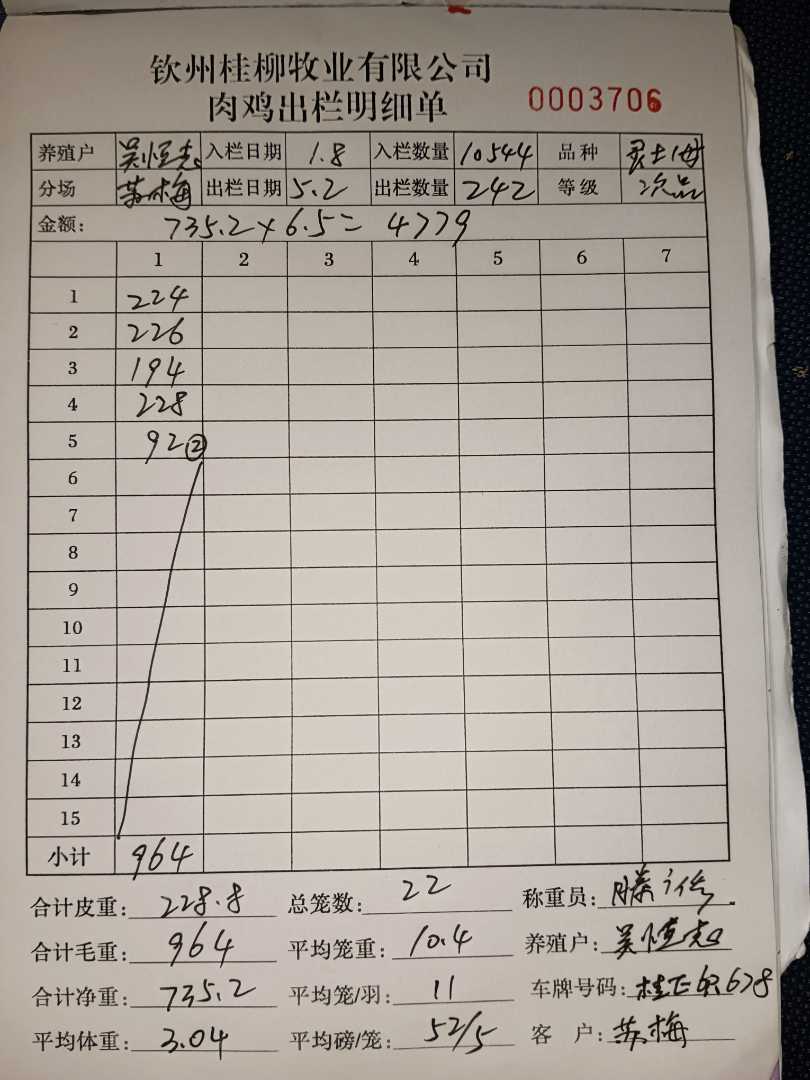 钦州桂柳牧业有限公司
肉鸡出栏明细单 0003706
养殖户 吴恒志 入栏日期 1.8 入栏数量 10544 品种 土1母
分场 苏梅 出栏日期 5.2 出栏数量 242 等级 次品
金额: 735.2×6.5= 4779
1 2 3 4 5 6 7
1 224
2 226
3 194
4 228
5 92②
6
7
8
9
10
11
12
13
14
15
小计 964
合计皮重: 228.8 总笼数: 22 称重员: 滕
合计毛重: 964 平均笼重: 10.4 养殖户: 吴恒志
合计净重: 735.2 平均笼/羽: 11 车牌号码: 桂 678
平均体重: 3.04 平均磅/笼: 52/5 客 户: 苏梅